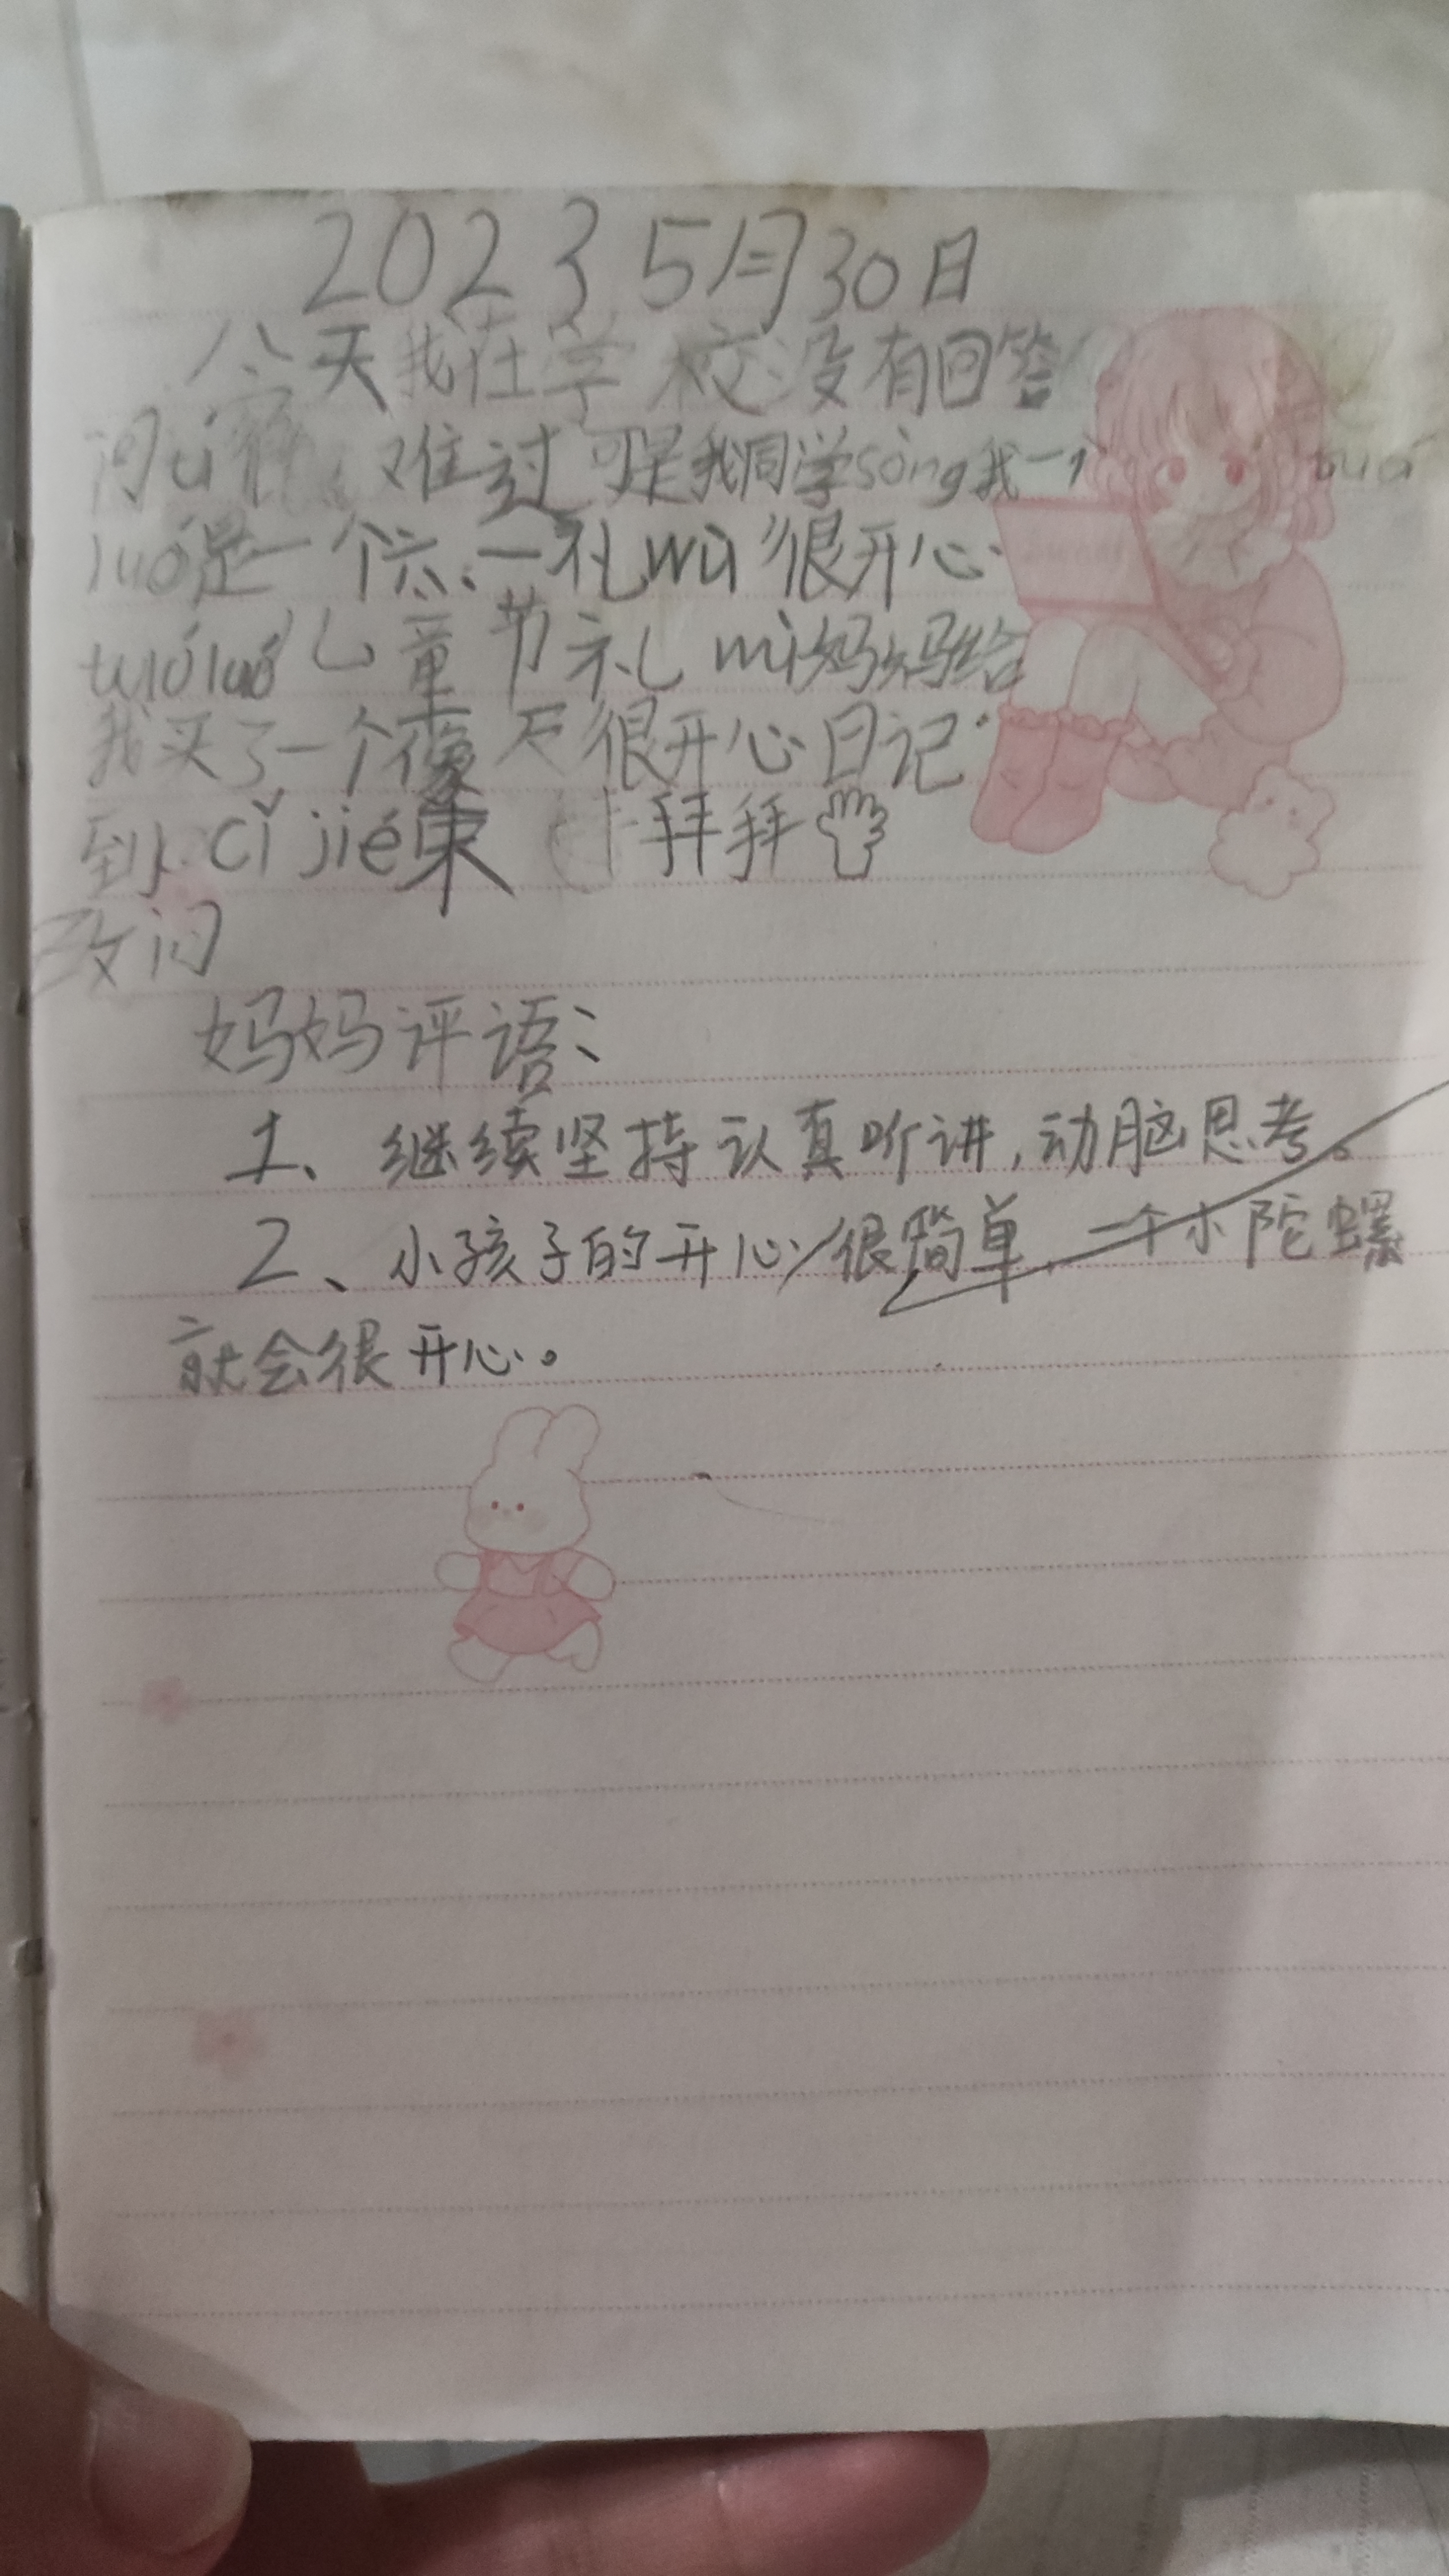 2023 5月30日
今天我在学校没有回答
问 难过可是我同学sòng我一个
luó是一个六、一礼wù很开心
tuóluó儿童节礼 妈妈给
我买了一个 很开心日记
到 cǐ jié束 拜拜
妈妈评语：
1、继续坚持认真听讲，动脑思考。
2、小孩子的开心很简单，一个小陀螺
就会很开心。